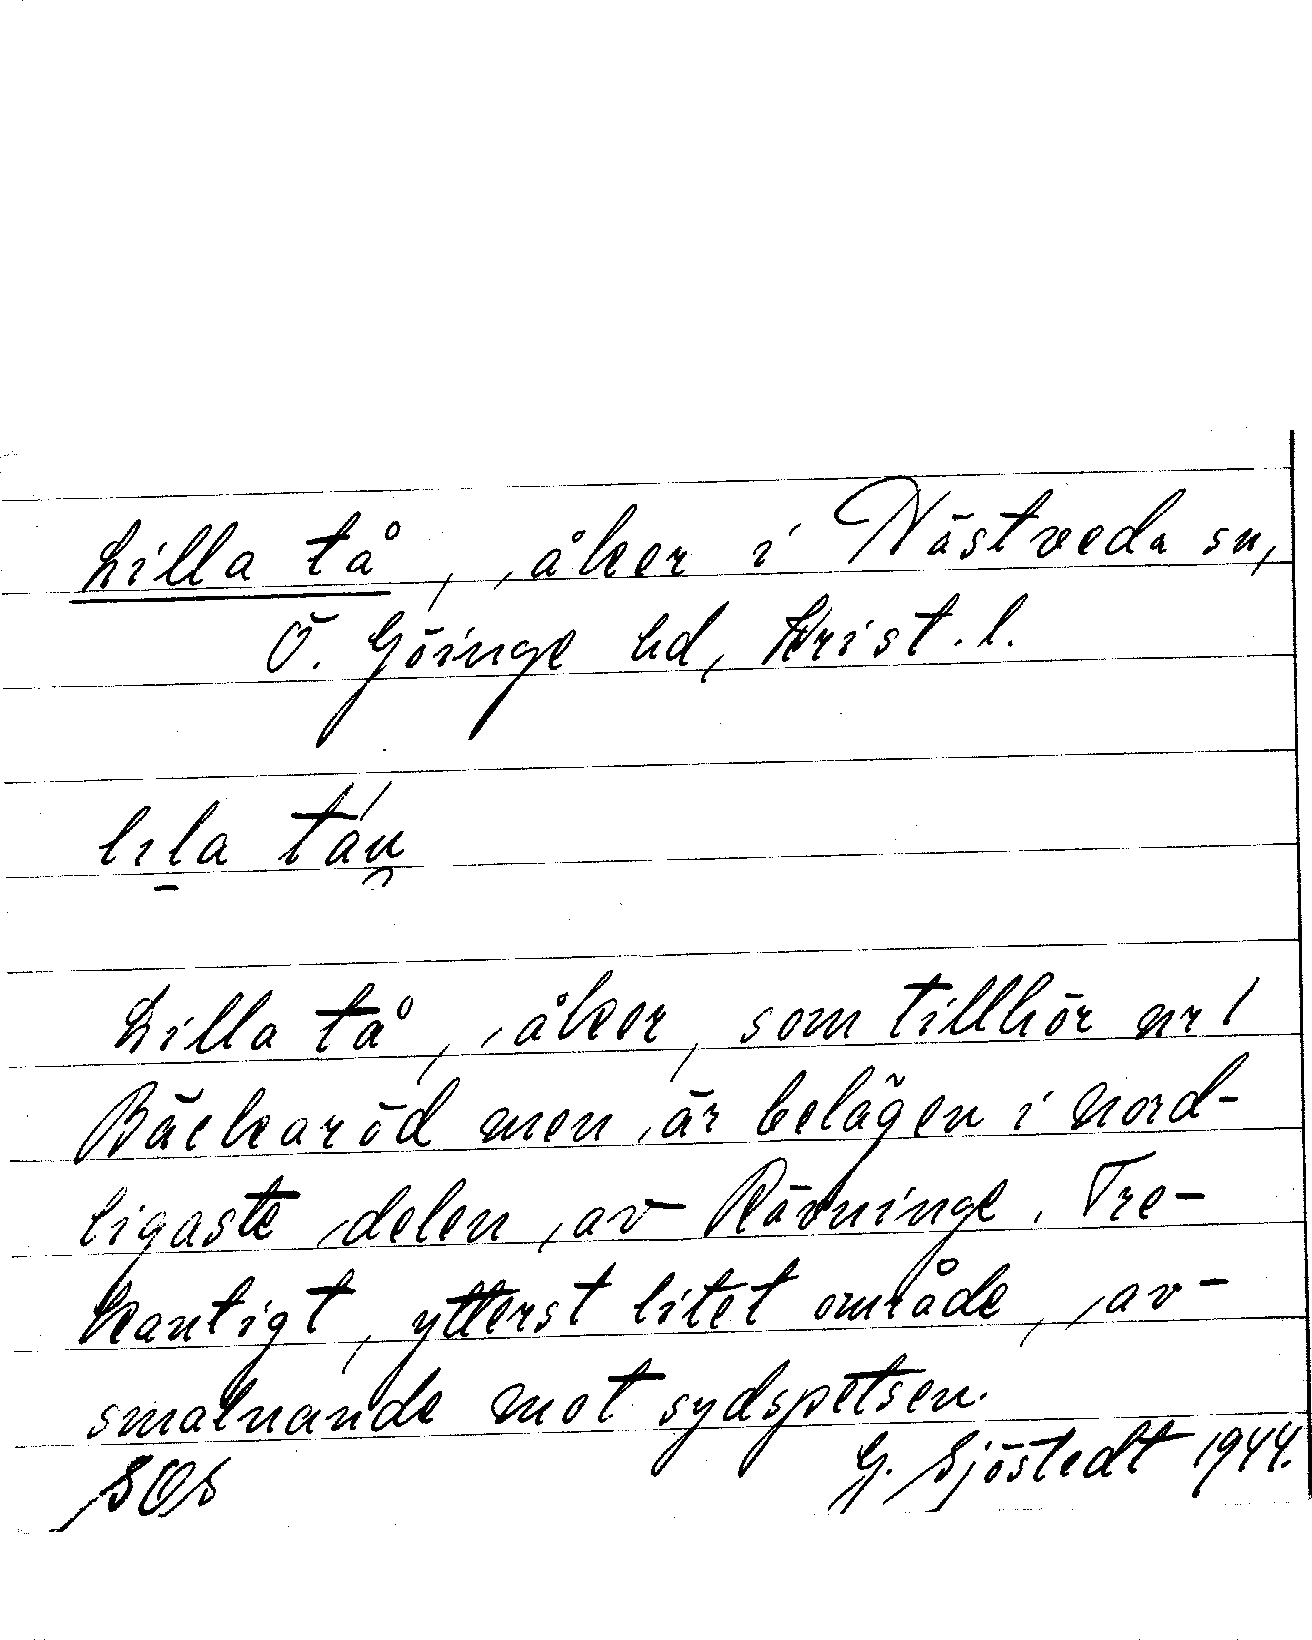 Lilla tå, åker i Nästveda sn,
Ö. Göinge hd, Krist. l.
lila táu̯
Lilla tå, åker, som tillhör nr 1
Bäckaröd men är belägen i nord-
ligaste delen av Rävninge. Tre-
kantigt, ytterst litet område, av-
smalnande mot sydspetsen.
SOS G. Sjöstedt 1944.